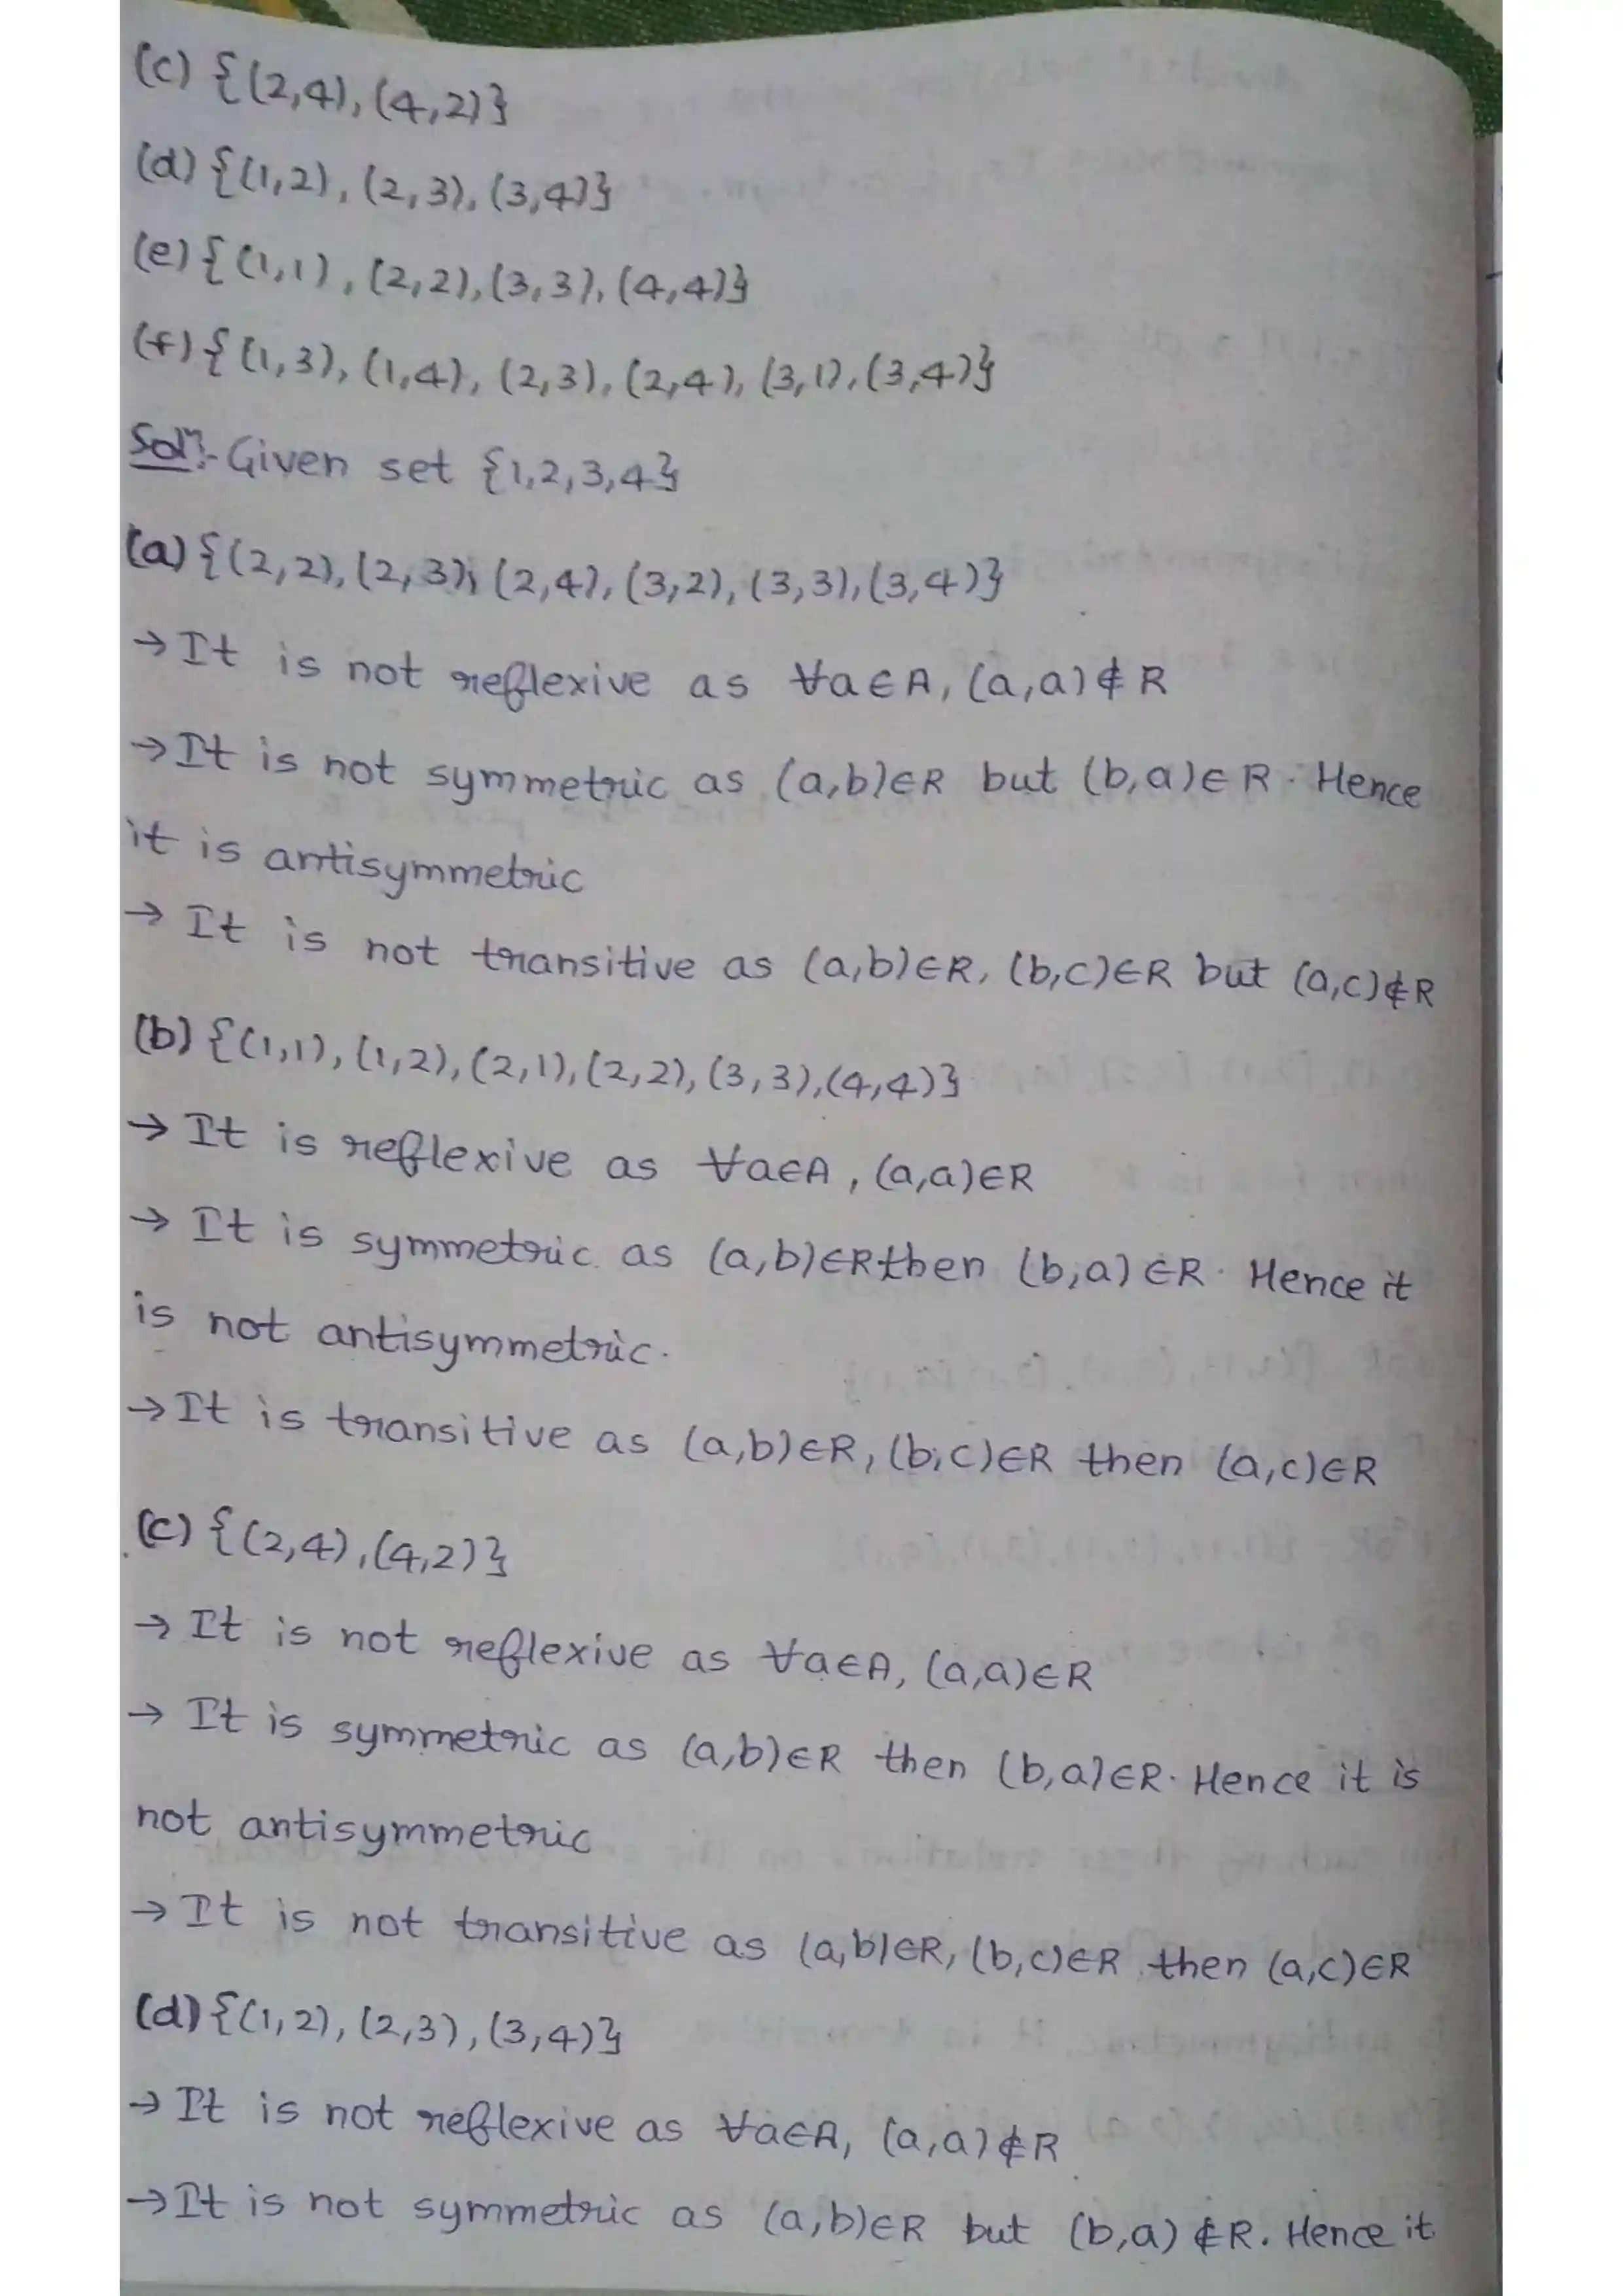 (c) {(2,4), (4,2)}
(d) {(1,2), (2,3), (3,4)}
(e) {(1,1), (2,2), (3,3), (4,4)}
(f) {(1,3), (1,4), (2,3), (2,4), (3,1), (3,4)}
Solⁿ:- Given set {1,2,3,4}
(a) {(2,2), (2,3), (2,4), (3,2), (3,3), (3,4)}
→ It is not reflexive as ∀a∈A, (a,a)∉R
→ It is not symmetric as (a,b)∈R but (b,a)∈R. Hence
it is antisymmetric
→ It is not transitive as (a,b)∈R, (b,c)∈R but (a,c)∉R
(b) {(1,1), (1,2), (2,1), (2,2), (3,3), (4,4)}
→ It is reflexive as ∀a∈A, (a,a)∈R
→ It is symmetric as (a,b)∈R then (b,a)∈R. Hence it
is not antisymmetric.
→ It is transitive as (a,b)∈R, (b,c)∈R then (a,c)∈R
(c) {(2,4), (4,2)}
→ It is not reflexive as ∀a∈A, (a,a)∈R
→ It is symmetric as (a,b)∈R then (b,a)∈R. Hence it is
not antisymmetric
→ It is not transitive as (a,b)∈R, (b,c)∈R then (a,c)∈R
(d) {(1,2), (2,3), (3,4)}
→ It is not reflexive as ∀a∈A, (a,a)∉R
→ It is not symmetric as (a,b)∈R but (b,a)∉R. Hence it